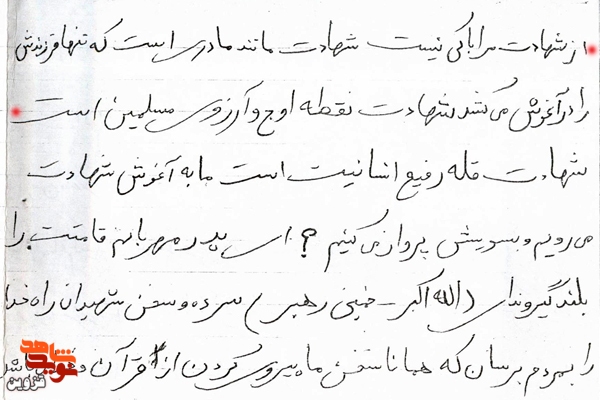 از شهادت مرا باکی نیست شهادت مانند مادری است که تنها فرزندش
را در آغوش می‌کشد شهادت نقطه اوج و آرزوی مسلمین است
شهادت قله رفیع انسانیت است ما به آغوش شهادت
می‌رویم و بسویش پرواز می‌کنیم ؟ ای پدر مهربانم قامتت را
بلند گیر و ندای (الله اکبر - خمینی رهبر) سر ده و سخن شهیدان راه خدا
را بمردم برسان که همانا سخن ما پیروی کردن از قرآن
شاهد
نوید
قزوین